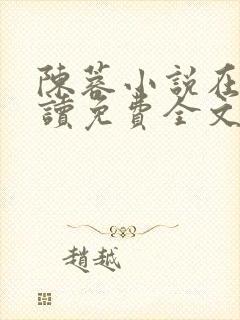 陳蓉小說在
讀免費全文
趙越